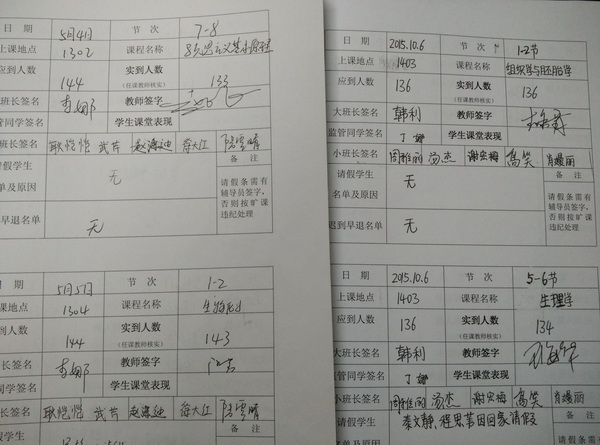 日 期 5月4日 节 次 7-8
上课地点 1302 课程名称
应到人数 144 实到人数 133
(任课教师核实)
班长签名 教师签字
管同学签名 学生课堂表现
耿恺恺 武芹
请假学生 无 备 注
单及原因
请假条需有
辅导员签字,
否则按旷课
违纪处理
早退名单 无
日 期 5月5日 节 次 1-2
课地点 1304 课程名称
到人数 144 实到人数 143
(任课教师核实)
长签名 教师签字
同学签名 学生课堂表现
长签名 耿恺恺 武芹
备 注
日 期 2015.10.6 节 次 1-2节
上课地点 1403 课程名称 组织学与胚胎学
应到人数 136 实到人数 136
(任课教师核实)
大班长签名 韩利 教师签字
监管同学签名 丁 学生课堂表现
小班长签名 汤杰 谢宏梅 高笑
请假学生 无 备 注
名单及原因
请假条需有
辅导员签字,
否则按旷课
违纪处理
迟到早退名单 无
日 期 2015.10.6 节 次 5-6节
上课地点 1403 课程名称 生理学
应到人数 136 实到人数 134
(任课教师核实)
大班长签名 韩利 教师签字
监管同学签名 丁 学生课堂表现
小班长签名 汤杰 谢宏梅 高笑
秦文静,程思芾因回家请假